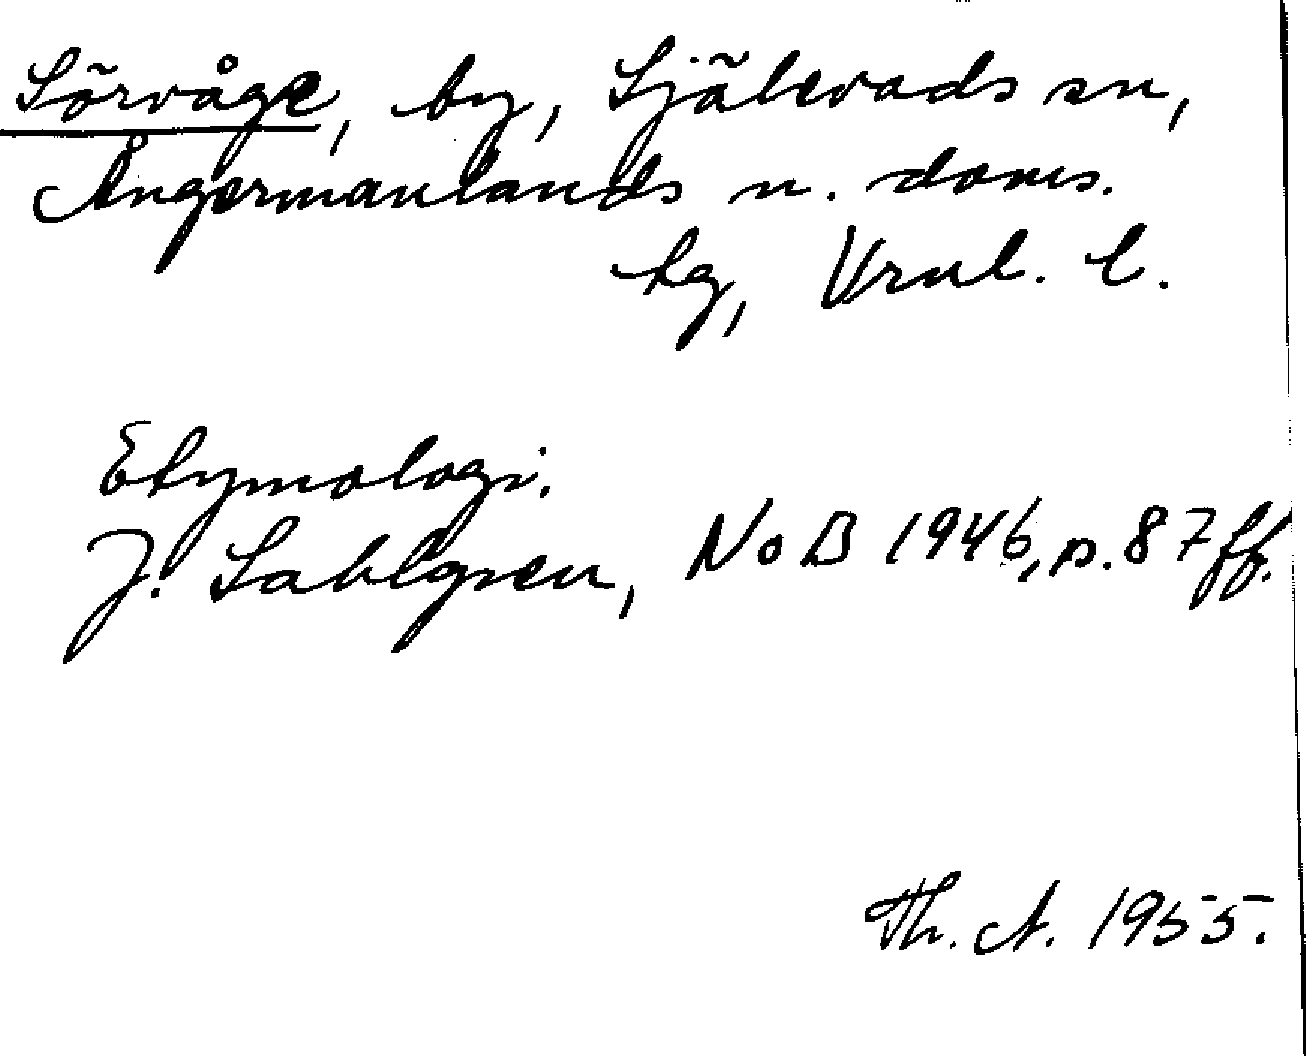 Sörvåge, by, Själevads sn,
Ångermanlands n. doms.
hg, Vrnl. l.
Etymologi.
J. Sahlgren, NoB 1946, p. 87 ff.
Th. A. 1955.